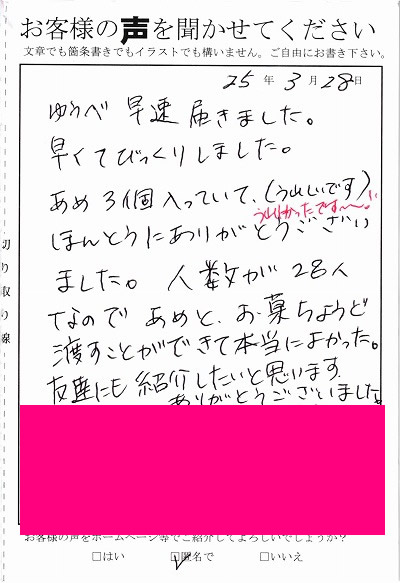 お客様の声を聞かせてください
文章でも箇条書きでもイラストでも構いません。ご自由にお書き下さい。
25年3月28日
ゆうべ 早速 届きました。
早くてびっくりしました。
あめ 3個入っていて、(うれしいです)
うれしかったです〜!!
ほんとうにありがとうござい
ました。 人数が 28人
なので あめと、お菓ちょうど
渡すことができて本当によかった。
友達にも 紹介したいと思います
ありがとうございました。
お客様の声をホームページ等でご紹介してよろしいでしょうか?
□はい □匿名で □いいえ
切り取り線